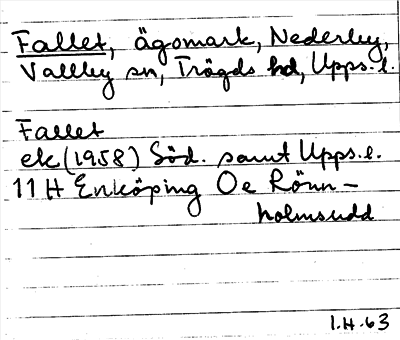 Fallet, ägomark, Nederby,
Vallby sn, Trögds hd, Upps. l.
Fallet
ek (1958) Söd. samt Upps. l.
11 H Enköping Oe Rönn-
holmsudd
I.H. 63